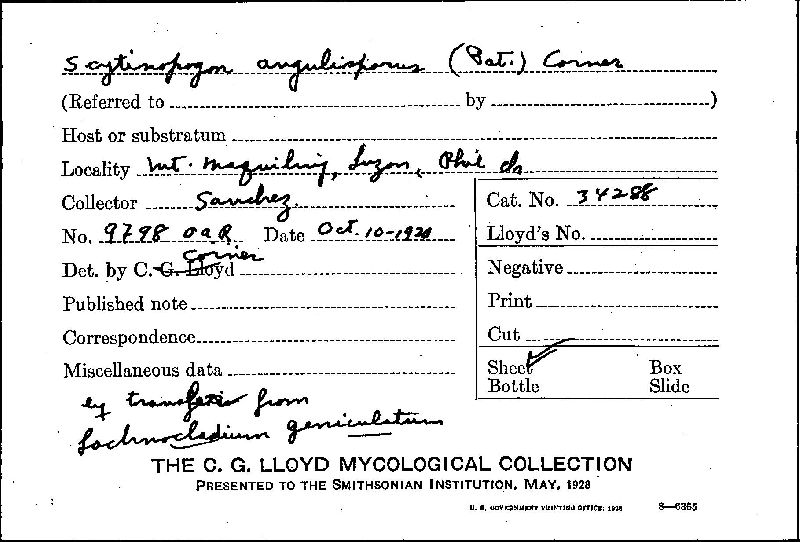 Scytinopogon angulisporus (Pat.) Corner
(Referred to by )
Host or substratum
Locality Mt. Maquiling, Luzon, Phil Is
Collector Sanchez. Cat. No. 34288
No. 9798 Date Oct. 10-1920 Lloyd's No.
Corner
Det. by C. G. Lloyd Negative
Published note Print
Correspondence Cut
Miscellaneous data Sheet Box
Bottle Slide
by transfer from
Lachnocladium geniculatum
THE C. G. LLOYD MYCOLOGICAL COLLECTION
PRESENTED TO THE SMITHSONIAN INSTITUTION, MAY, 1928
U. S. GOVERNMENT PRINTING OFFICE: 1928 8—6365